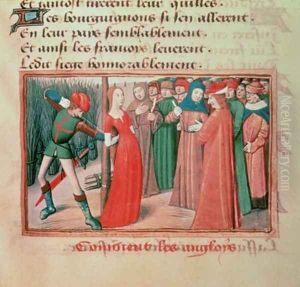 Et tantost tirerent leur quilles
Les bourguignons si sen allerent
En leur pays semblablement
Et ainsi les francois leuerent
Ledit siege honnorablement
NiceArtGallery.com